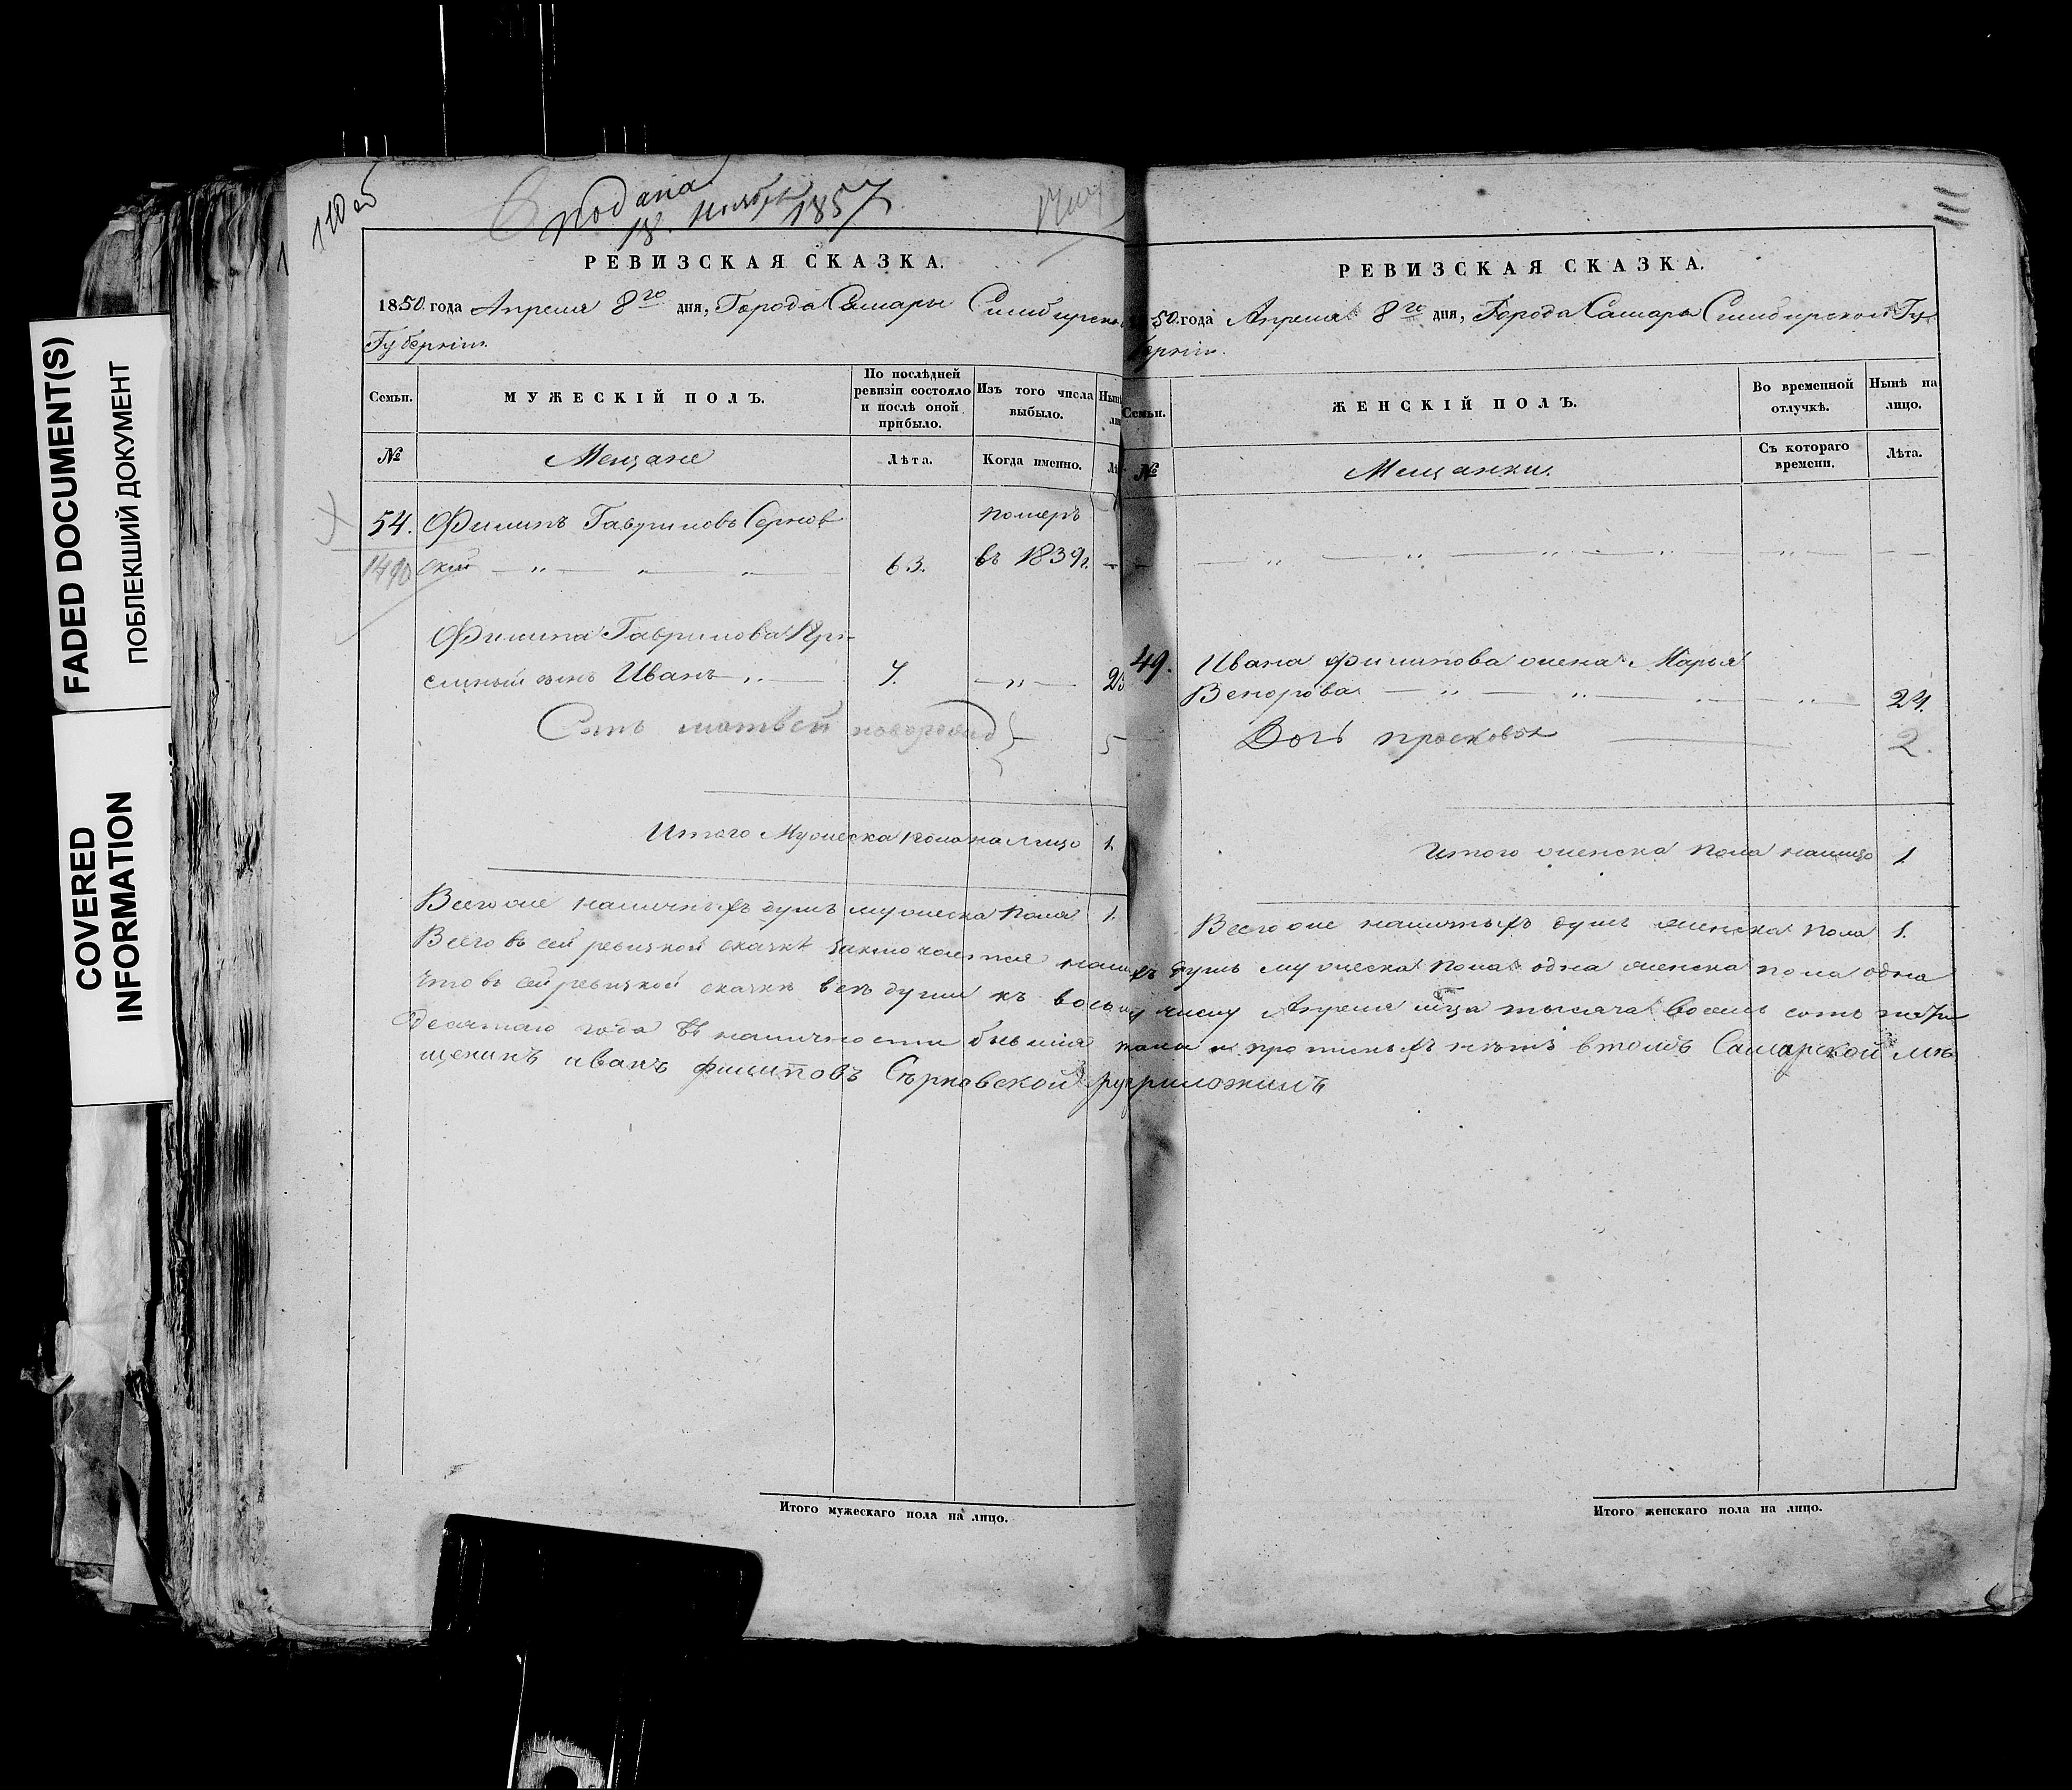 FADED DOCUMENT(S)
ПОБЛЕКШИЙ ДОКУМЕНТ
COVERED
INFORMATION
110 об
подана
18. Ноября 1857
РЕВИЗСКАЯ СКАЗКА.
1850. года Апреля 8го дня, Города Самары Симбирской
Губернiи.
Семьи.
МУЖЕСКІЙ ПОЛЪ.
По послѣдней
ревизіи состояло
и послѣ оной
прибыло.
Изъ того числа
выбыло.
№
Мещане
Лѣта.
Когда именно.
54. Филипъ Гавриловъ Сернов
померъ
1490 ской 63. въ 1839г.
Филипа Гаврилова Прі-
емный сынъ Иванъ 7. „ 23
Сынъ матвей новорожд 5
Итого Мужеска пола на лицо 1.
Всего же наличныхъ душъ мужеска пола 1.
РЕВИЗСКАЯ СКАЗКА.
50. года Апреля 8го дня, Города Самары Симбирской Гу
берніи.
Семьи.
ЖЕНСКІЙ ПОЛЪ.
Во временной
отлучкѣ.
Нынѣ на
лицо.
№
Мещанки.
Съ котораго
времени.
Лѣта.
49. Ивана филипова жена Марья
24.
Дочь прасковья 2.
Итого женска пола налицо 1
Всего же наличныхъ душъ женска пола 1.
Всего въ сей ревизкой сказке заключается душъ мужеска пола одна женска пола одна
что въ сей ревизкой сказке все души къ числу Апреля мца тысяча восемь сотъ
десятаго года въ наличности бывшия в томъ Самарской ме
щенинъ иванъ филиповъ Сѣрновской приложилъ
Итого мужескаго пола на лицо.
Итого женскаго пола на лицо.